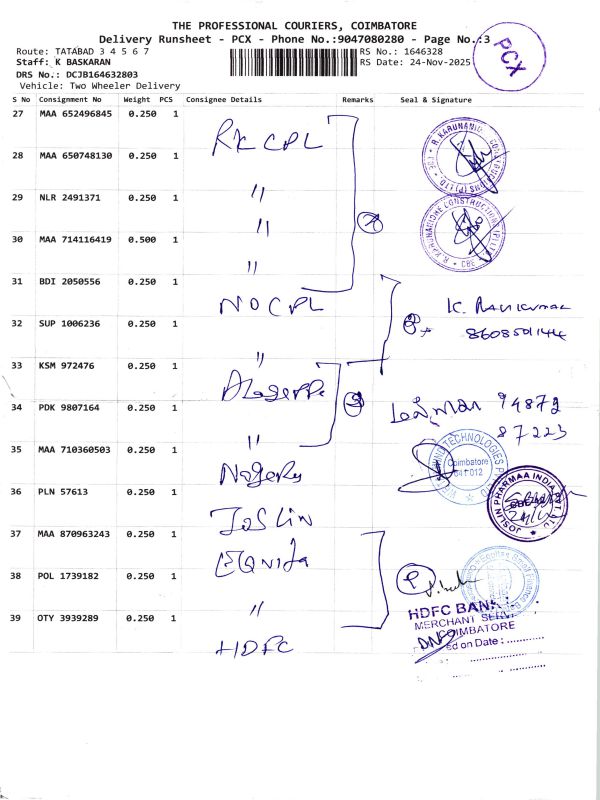 THE PROFESSIONAL COURIERS, COIMBATORE
Delivery Runsheet - PCX - Phone No.:9047080280 - Page No.:3
Route: TATABAD 3 4 5 6 7
RS No.: 1646328
Staff: K BASKARAN
RS Date: 24-Nov-2025
DRS No.: DCJB164632803
Vehicle: Two Wheeler Delivery
PCX
S No Consignment No Weight PCS Consignee Details Remarks Seal & Signature
27 MAA 652496845 0.250 1
RK CPL
28 MAA 650748130 0.250 1
"
29 NLR 2491371 0.250 1
"
30 MAA 714116419 0.500 1
"
31 BDI 2050556 0.250 1
NOCPL
K. RAVIKUMAR
32 SUP 1006236 0.250 1
8608501144
"
33 KSM 972476 0.250 1
34 PDK 9807164 0.250 1
94873
87223
"
35 MAA 710360503 0.250 1
Coimbatore
641 012
36 PLN 57613 0.250 1
JOSLIN
JOSLIN PHARMAA INDIA
37 MAA 870963243 0.250 1
38 POL 1739182 0.250 1
"
39 OTY 3939289 0.250 1
HDFC
HDFC BANK
MERCHANT SERV
COIMBATORE
ed on Date : ............